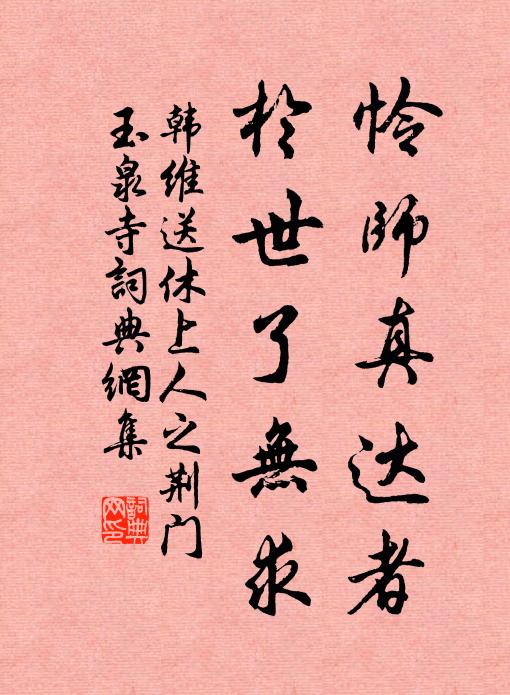 怜师真达者
於世了無求
韩维送休上人之荆门
玉泉寺詞典網集
詞典网印